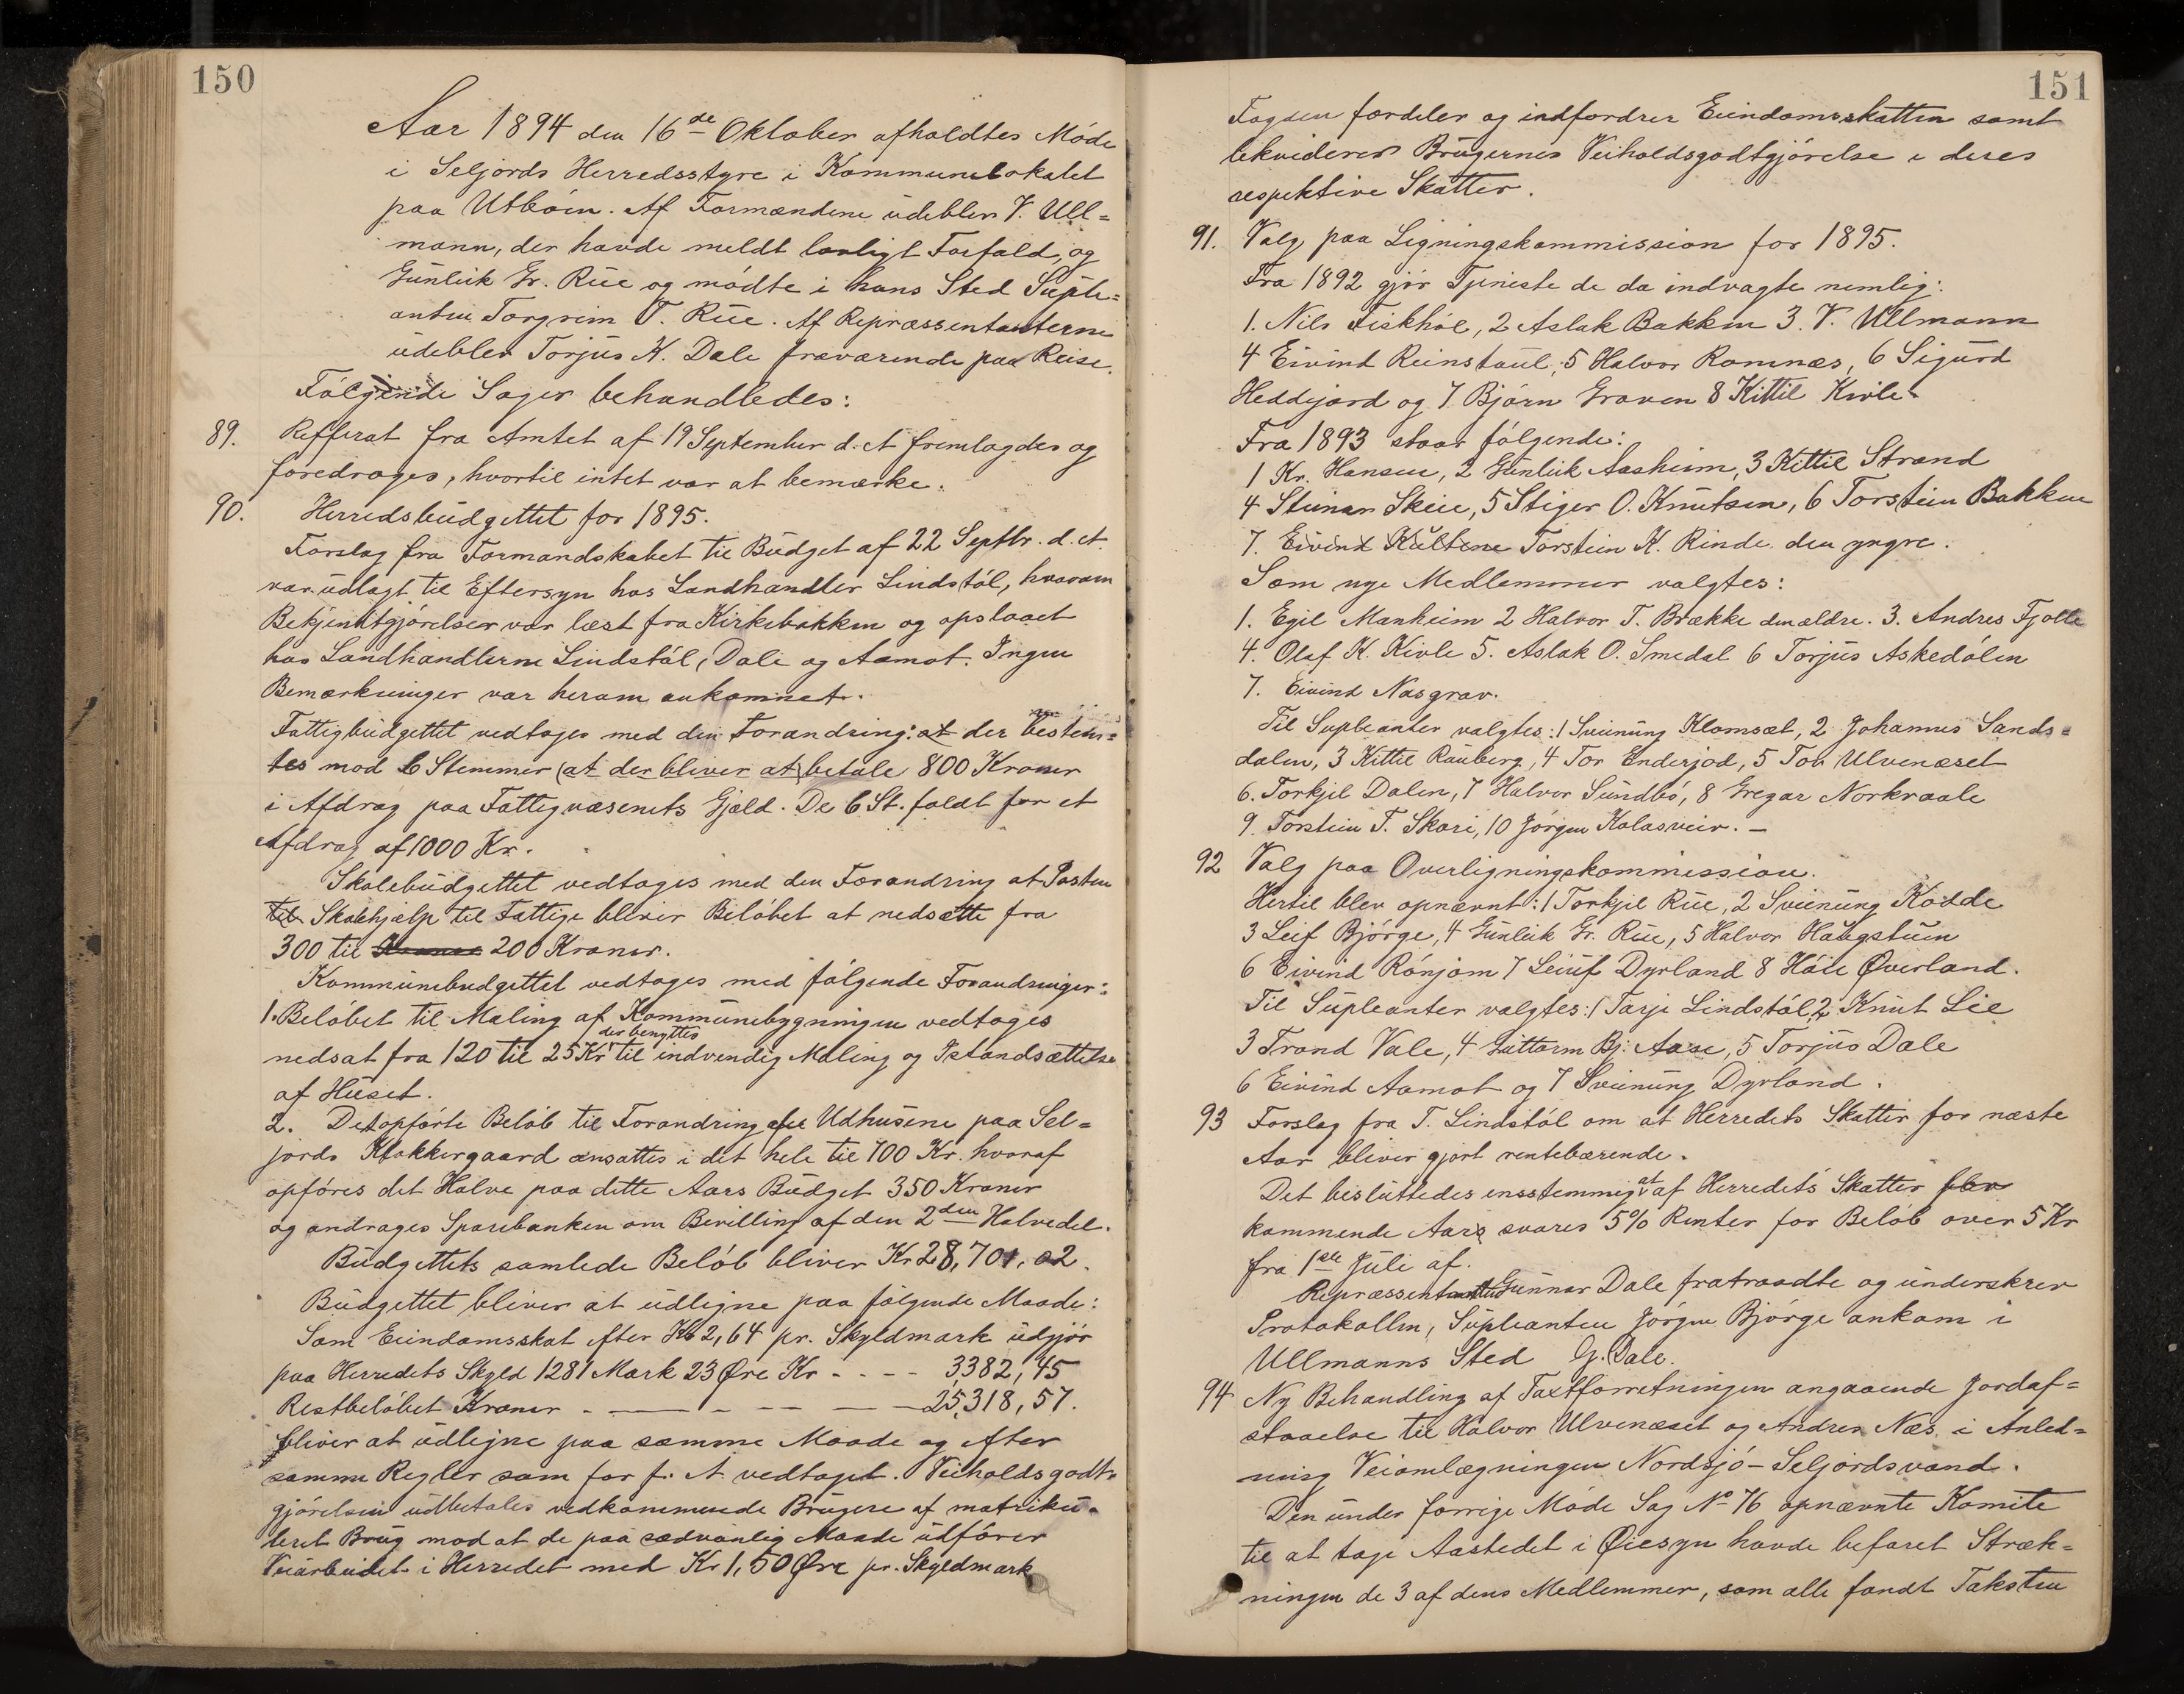 150
Aar 1894 den 16de Oktober afholdtes Möde
i Seljords Herredsstyre i Kommunelokalet
paa Utböin. Af Formændene udeblev V. Ull=
mann, der havde meldt lovligt Forfald, og
Gunleik Gr. Rue og mödte i hans Sted Suple=
anten Torgrim T. Rue. Af Repræssentanterne
udeblev Torjus K. Dale fraværende paa Reise.
Fölgende Sager behandledes:
89. Refferat fra Amtet af 19 September d. A fremlagdes og
foredroges, hvortil intet var at bemærke.
90. Herredsbudgettet for 1895.
Forslag fra Formandskabet til Budget af 22 Septbr. d. A.
var udlagt til Eftersyn hos Landhandler Lindstöl, hvorom
Bekjendtgjörelser var læst fra Kirkebakken og opslaaet
hos Landhandlerne Lindstöl, Dale og Aamot. Ingen
Bemærkninger var herom ankomnet.
Fattigbudgettet vedtoges med den Forandring: at der bestem=
tes mod 6 Stemmer (at der bliver at) betale 800 Kroner
i Afdrag paa Fattigvæsenets Gjæld. De 6 St. faldt for et
Afdrag af 1000 Kr.
Skolebudgettet vedtoges med den Forandring at Posten
til Skolehjælp til Fattige bliver Belöbet at nedsætte fra
300 til Kroner 200 Kroner.
Kommunebudgettet vedtoges med fölgende Forandringer:
1. Belöbet til Maling af Kommunebygningen vedtoges
der benyttes
nedsat fra 120 til 25 Kr til indvendig Maling og Istandsættelse
af Huset.
2. Det opförte Belöb til Forandring efter Udhusene paa Sel=
jords Klokkergaard ansattes i det hele til 700 Kr. hvoraf
opföres det Halve paa dette Aars Budget 350 Kroner
og andrages Sparebanken om Bevilling af den 2den Halvedel.
Budgettets samlede Belöb bliver Kr 28,701,02.
Budgettet bliver at udligne paa fölgende Maade:
Som Eiendomsskat efter Kr 2,64 pr. Skyldmark udgjör
paa Herredets Skyld 1281 Mark 23 Øre Kr - - - - 3,382,45
Restbelöbet Kroner - — - — — — 25,318,57.
bliver at udligne paa samme Maade og efter
samme Regler som for f. A. vedtaget. Veiholdsgodt=
gjörelsen udbetales vedkommende Brugere af matriku=
leret Brug mod at de paa sædvanlig Maade udförer
Veiarbeidet i Herredet med Kr 1,50 Øre pr. Skyldmark
151
Fogden fordeler og indfordrer Eiendomsskatten samt
likviderer Brugernes Veiholdsgodtgjörelse i deres
respektive Skatter.
91. Valg paa Ligningskommission for 1895.
Fra 1892 gjör Tjeneste de da indvagte nemlig:
1. Nils Fiskhöl, 2 Aslak Bakken 3. V. Ullmann
4 Eivind Reinstaul, 5 Halvor Romnæs, 6 Sigurd
Heddejord og 7 Björn Graven 8 Kittil Kivle
Fra 1893 staar fölgende:
1 Kr. Hansen, 2 Gunleik Aasheim, 3 Kittil Strand
4 Steinar Skeie, 5 Stiger O. Knutsen, 6 Torstein Bakken
7. Eivind Kultene Torstein K. Rinde den yngre.
Som nye Medlemmer valgtes:
1. Egil Manheim 2 Halvor T. Brække den ældre. 3. Andres Fjolle
4. Olaf K. Kivle 5. Aslak O. Smedal 6 Torjus Askedölen
7. Eivind Nasgrav.
Til Supleanter valgtes: 1 Sveinung Klomsæt, 2 Johannes Sands=
dalen, 3 Kittil Rauberg, 4 Tor Enderjod, 5 Tov Ulvenæset
6. Torkjil Dalen, 7 Halvor Sundbö, 8 Gregar Norkvaale
9. Torstein T. Skori, 10 Jörgen Kolasveir. —
92 Valg paa Overligningskommission.
Hertil blev opnævnt: 1 Torkjil Rue, 2 Sveinung Kødde
3 Leif Björge, 4 Gunleik Gr. Rue, 5 Halvor Haugstuen
6 Eivind Rönjom 7 Leiuf Dyrland 8 Höie Øverland.
Til Supleanter valgtes: 1 Tarje Lindstöl, 2 Knut Lie
3 Trond Vale, 4 Guttorm Bj. Aase, 5 Torjus Dale
6 Eivind Aamot og 7 Sveinung Dyrland.
93 Forslag fra T. Lindstöl om at Herredets Skatter for næste
Aar bliver gjort rentebærende.
Det besluttedes ensstemmig at af Herredets Skatter blev
kommende Aars svares 5% Renter for Belöb over 5 Kr
fra 1ste Juli af.
Repræssentanten Gunnar Dale fratraadte og underskrev
Protokollen, Supleanten Jörgen Björge ankom i
Ullmanns Sted G. Dale.
94 Ny Behandling af Taxtforretningen angaaende Jordaf=
staaelse til Halvor Ulvenæset og Andres Næs i Anled=
ning Veiomlægningen Nordsjö - Seljordsvand.
Den under forrige Möde Sag No 76 opnævnte Komite
til at tage Aastedet i Øiesyn havde befaret Stræk=
ningen de 3 af dens Medlemmer, som alle fandt Taksten